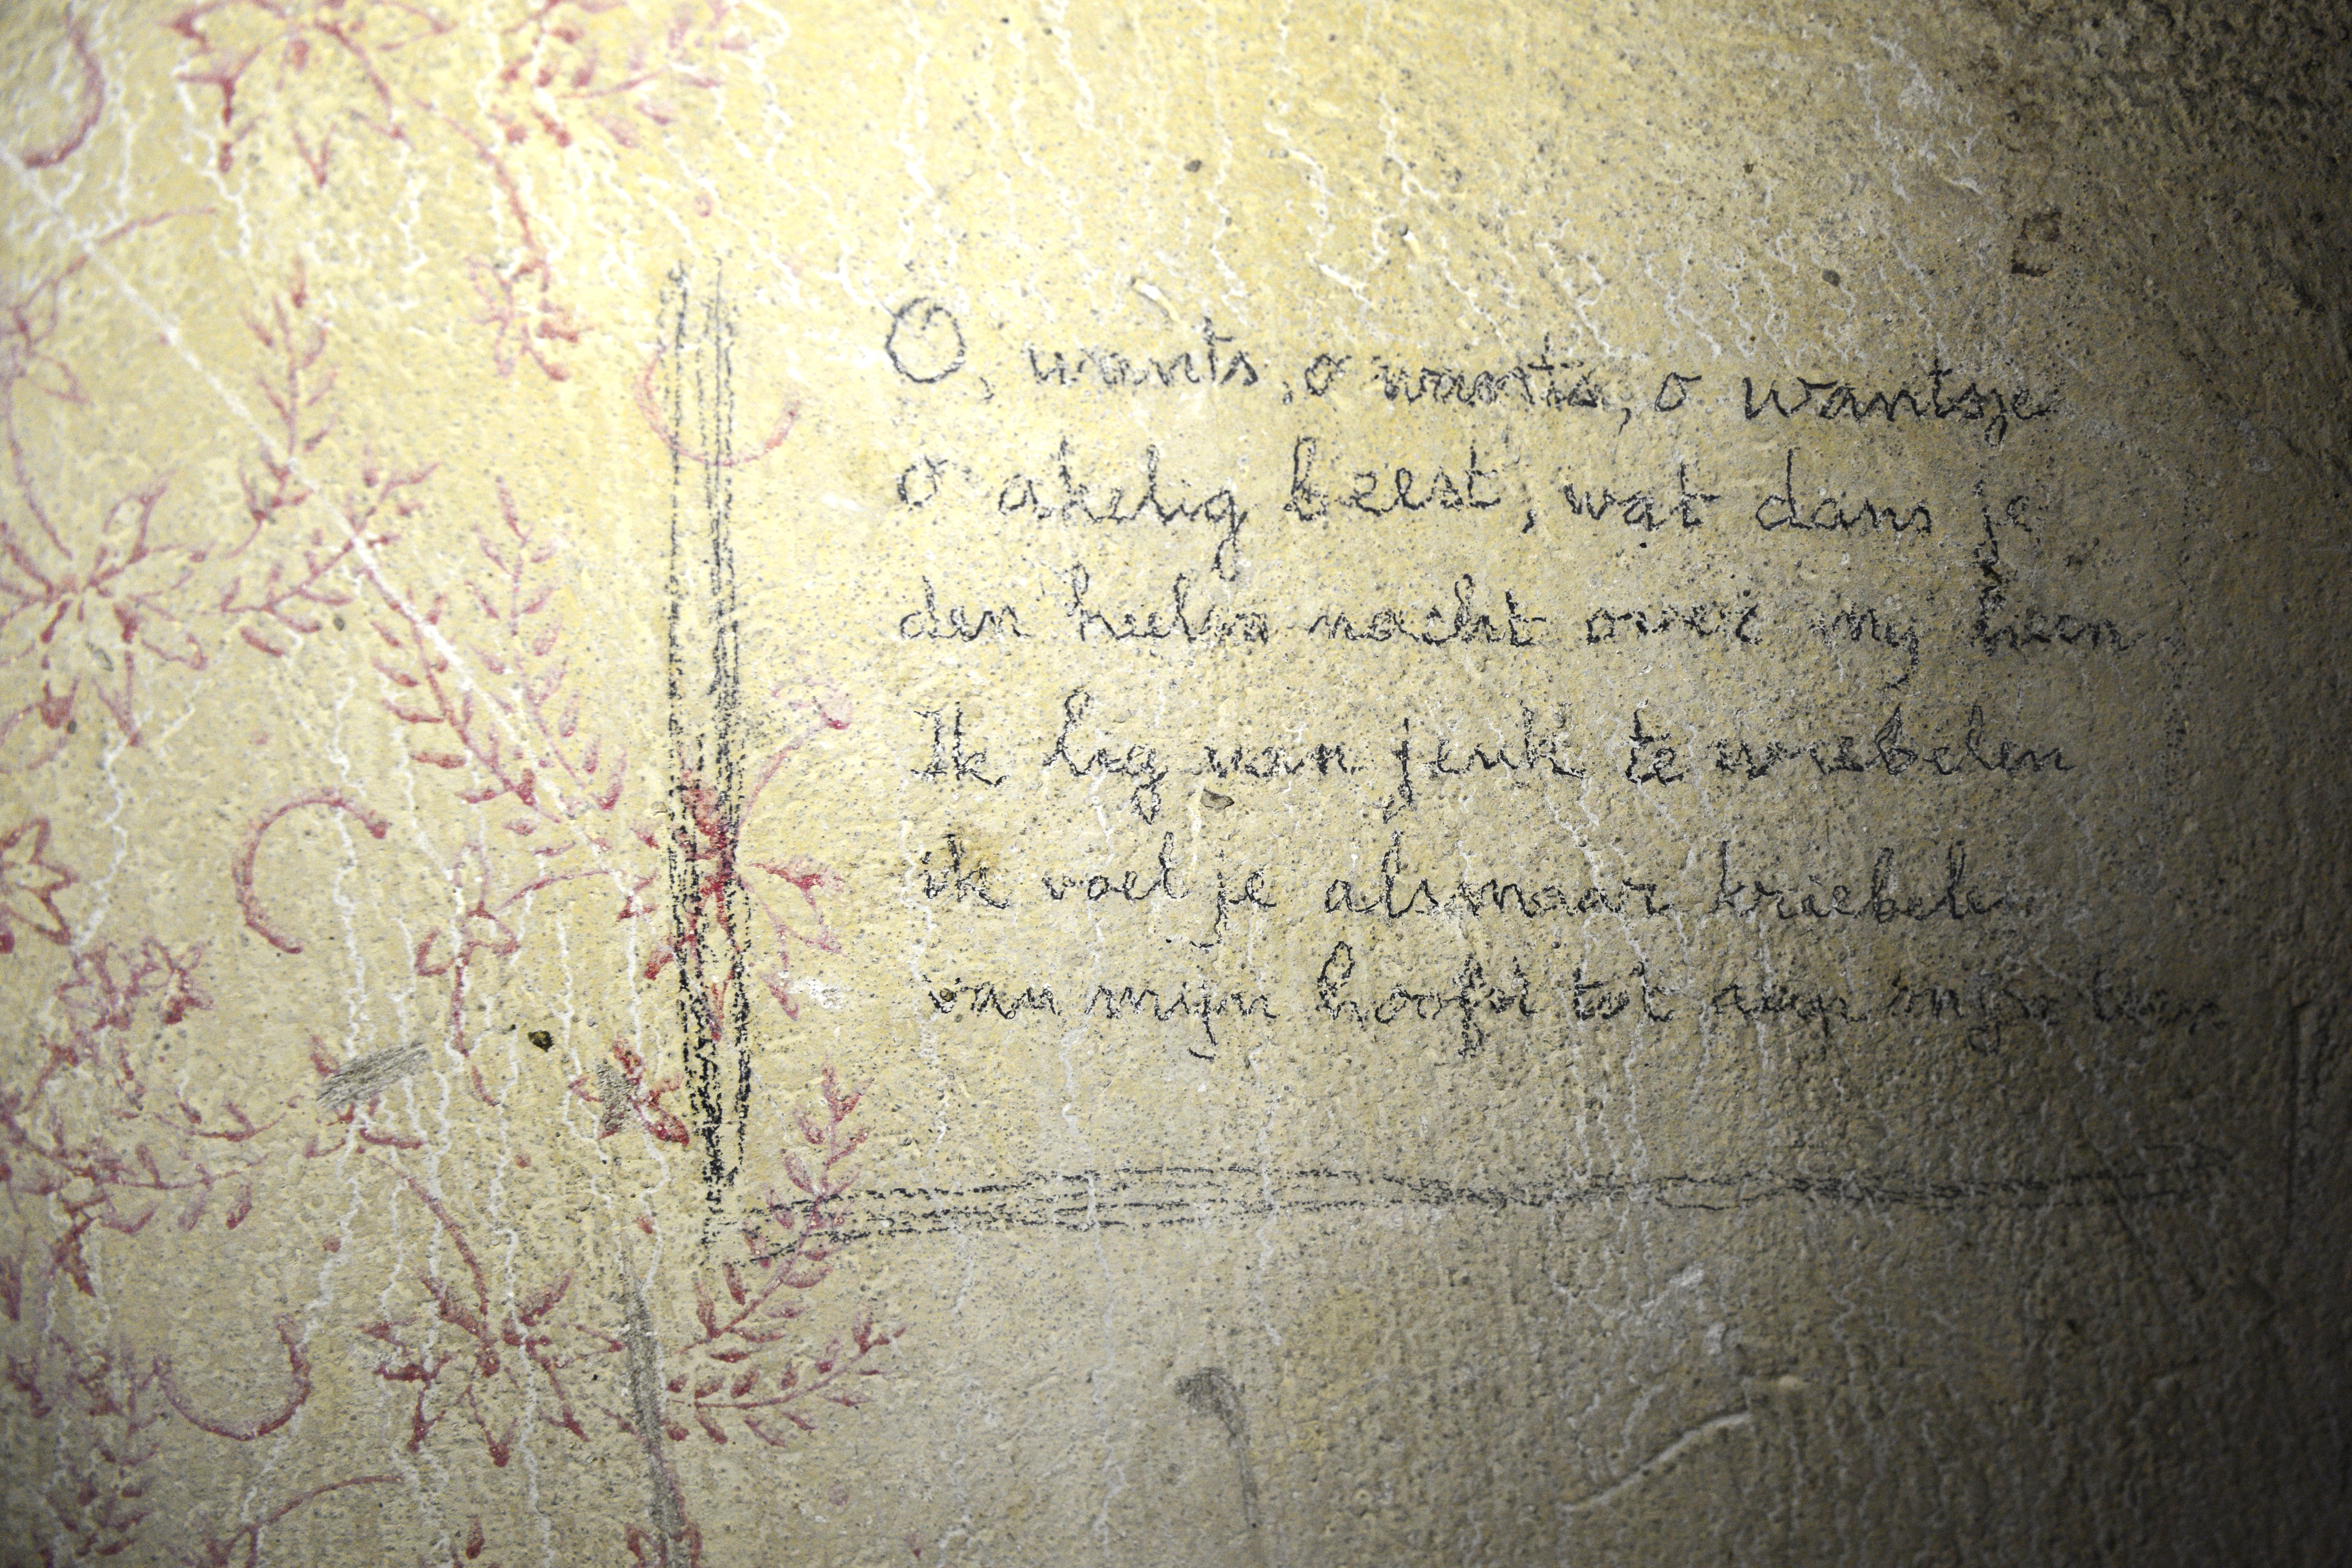 O, wants, o wants, o wantsje
o akelig beest, wat dans je
den heelen nacht over mij heen
Ik lig van jeuk te wriebelen
ik voel je alsmaar kriebelen
van mijn hoofd tot aan mijn teen